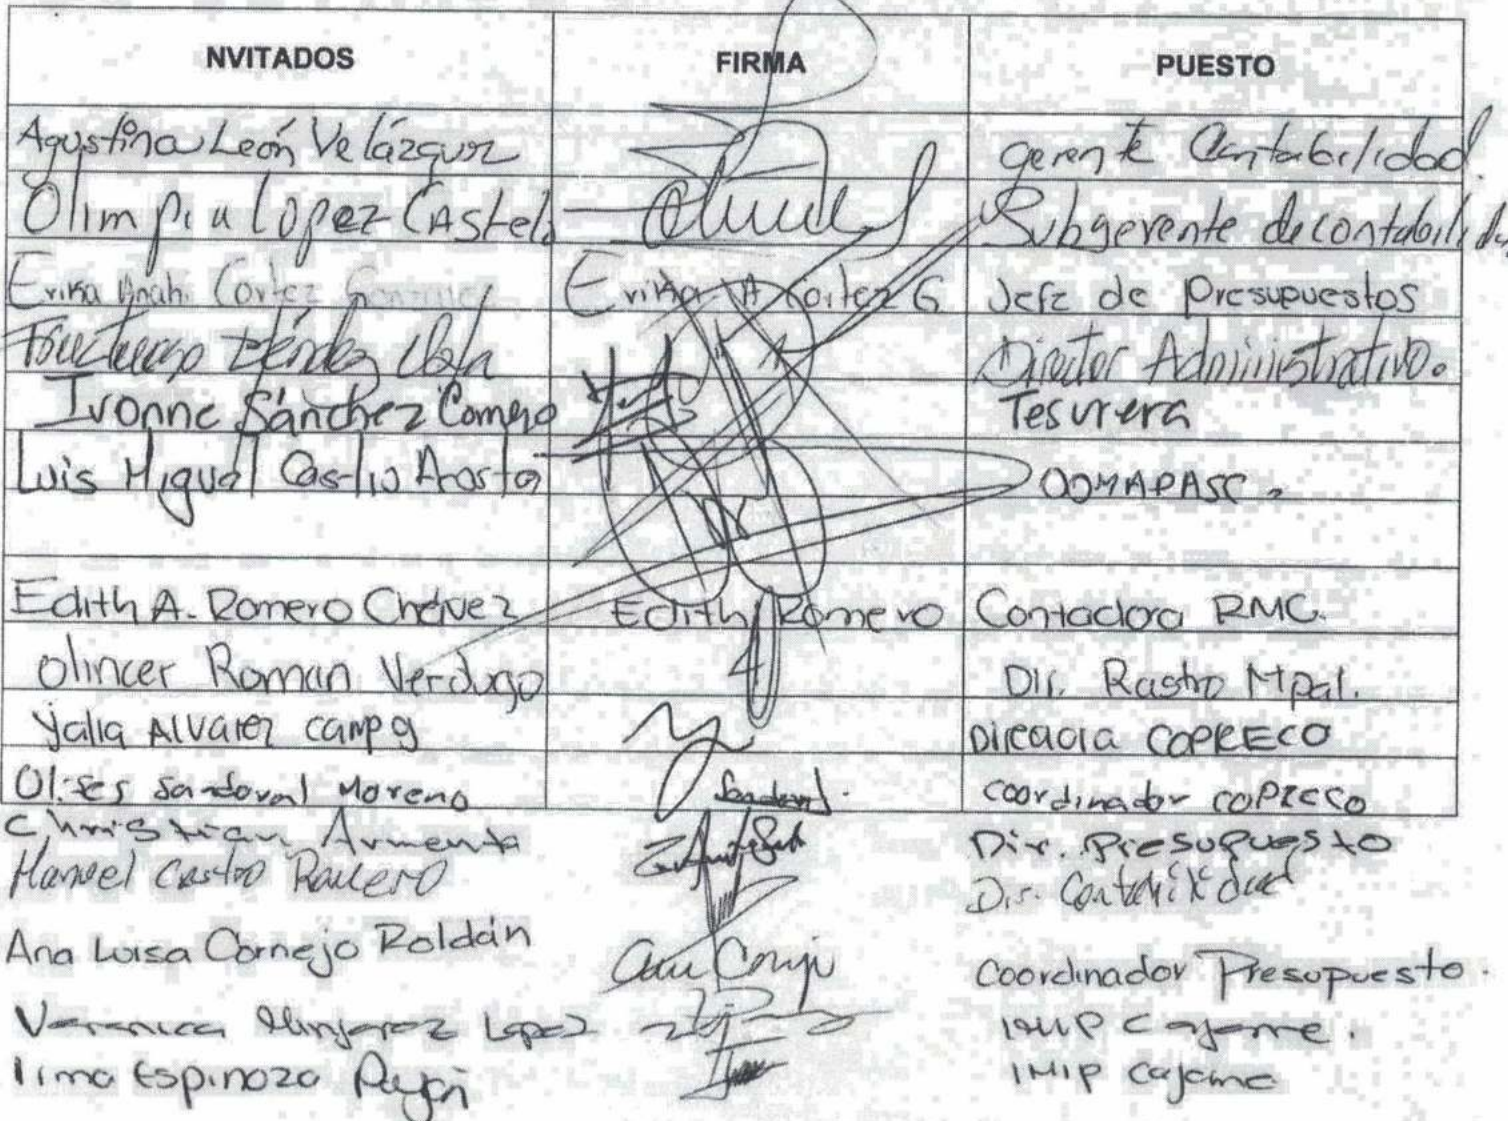 NVITADOS FIRMA PUESTO
Agustina León Velázquez gerente Contabilidad.
Olimpia López Castelo Subgerente de contabilidad
Erika Anahi Cortez Gonzalez Erika A Cortez G Jefe de Presupuestos
Director Administrativo.
Ivonne Sánchez Tesurera
Luis Miguel Castro Acosta OOMAPASC.
Edith A. Romero Chávez Edith Romero Contadora RMC.
Olincer Roman Verdugo Dir. Rastro Mpal.
Yalia Alvarez Campo Directora COPRECO
Ulises Sandoval Moreno Sandoval. Coordinador COPRECO
Christian Armenta Dir. Presupuesto
Manuel Castro Dir. Contabilidad
Ana Luisa Cornejo Roldán Ana Cornejo Coordinador Presupuesto.
Veronica Minjarez Lopez IMIP Cajeme.
Irma Espinoza Payán IMIP Cajeme